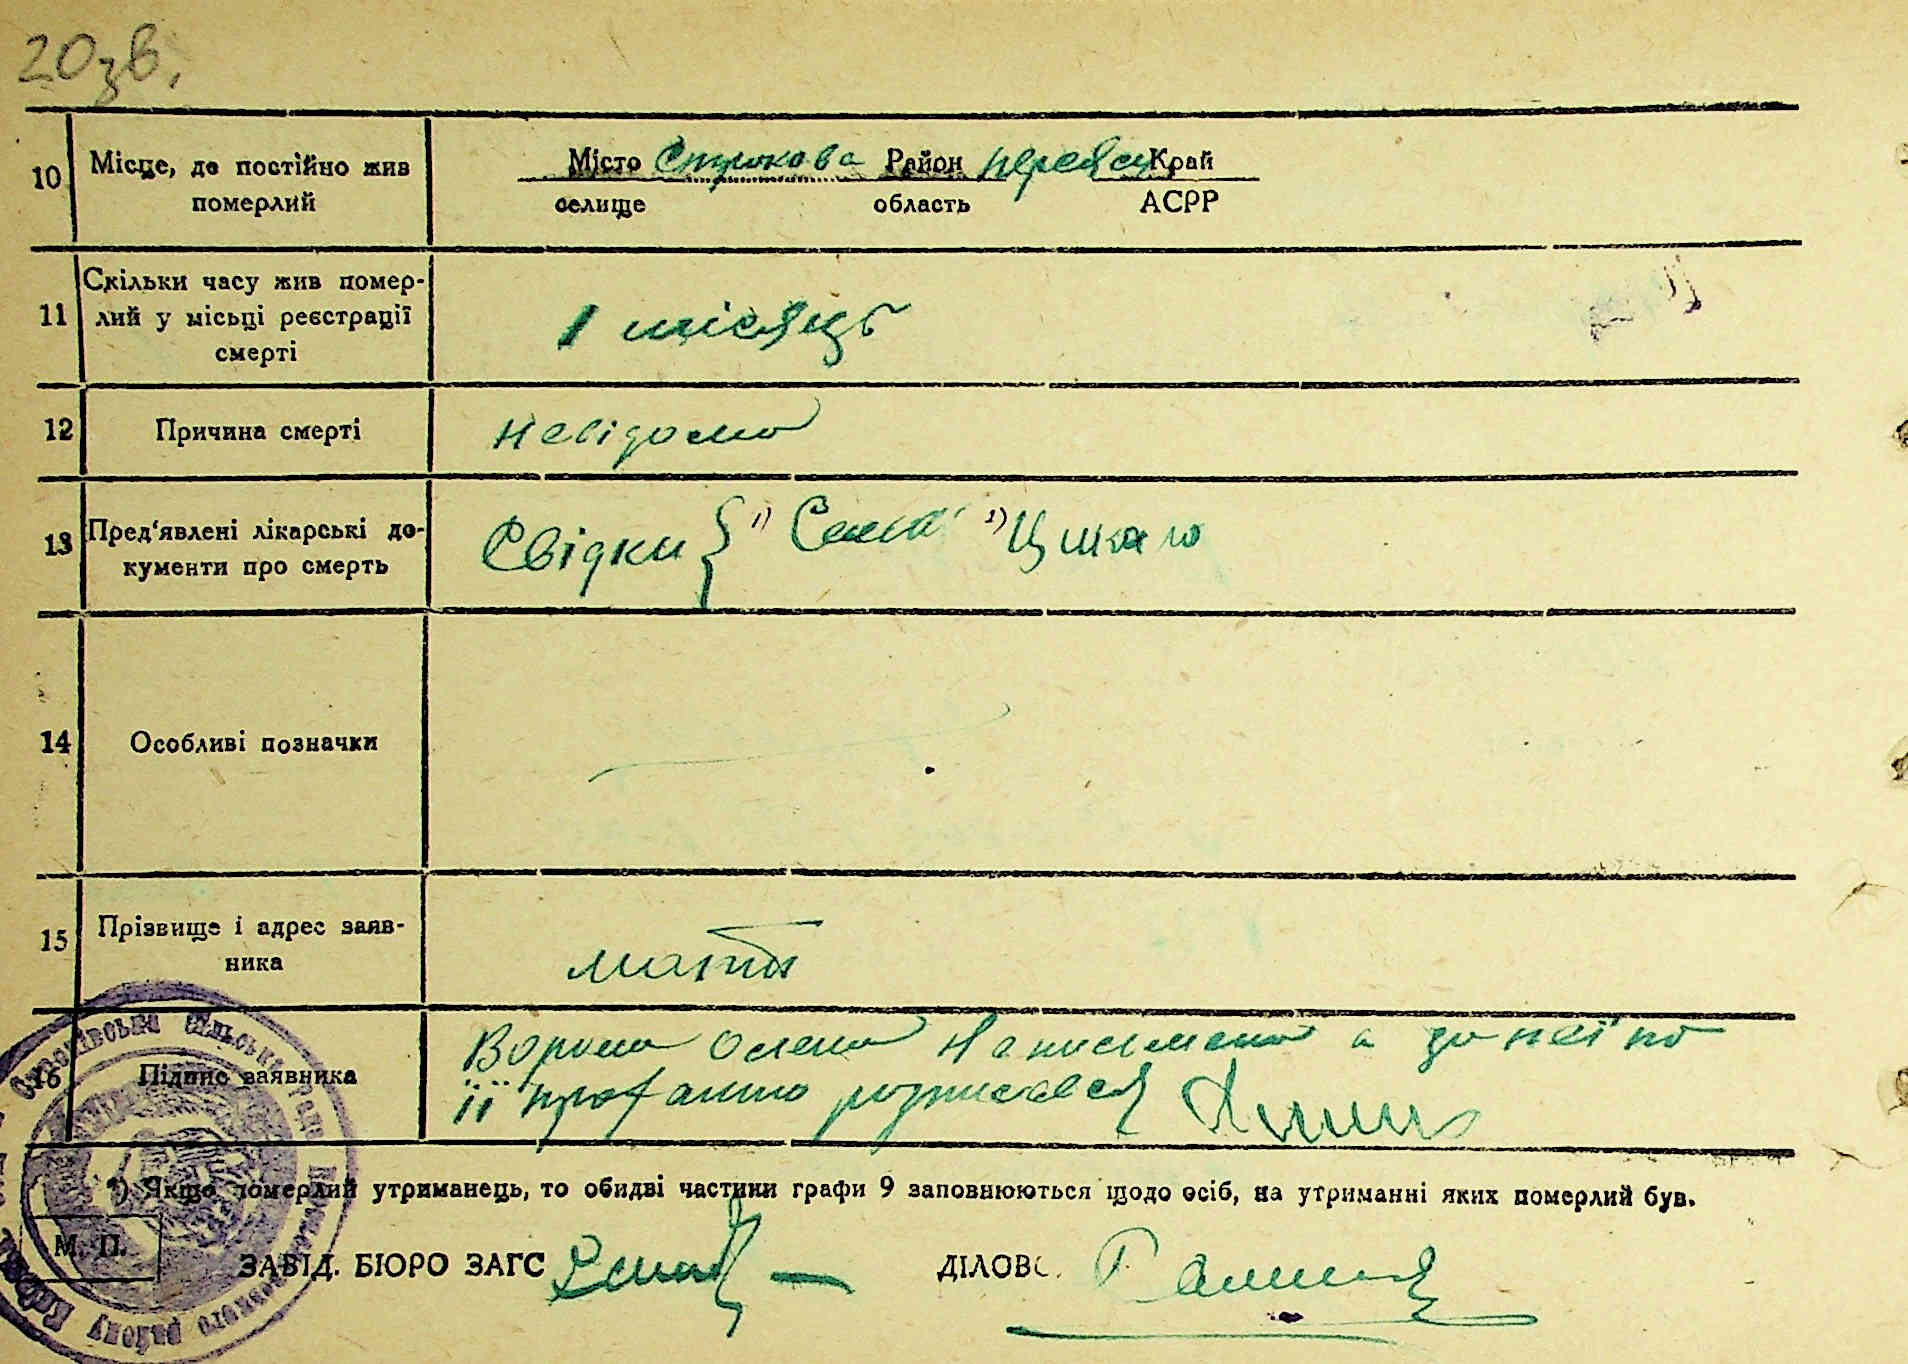 20зв.
10 Місце, де постійно жив померлий
Місто Строкова Район переясл Край
селище область АСРР
11 Скільки часу жив помер-
лий у місьці реєстрації
смерті
1 місяць
12 Причина смерті
невідома
13 Пред'явлені лікарські до-
кументи про смерть
Свідки { 1) 2)
14 Особливі позначки
15 Прізвище і адрес заяв-
ника
мати
16 Підпис заявника
Ворона Олена Неписьменна а за неї по
її проханню розписався
1) Якщо померлий утриманець, то обидві частини графи 9 заповнюються щодо осіб, на утриманні яких померлий був.
М. П.
ЗАВІД. БЮРО ЗАГС ДІЛОВ.